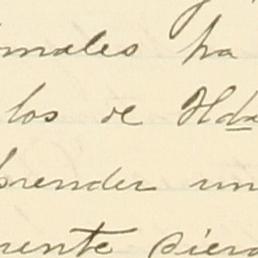 males ha
los de Hda
prender un
rente pierd